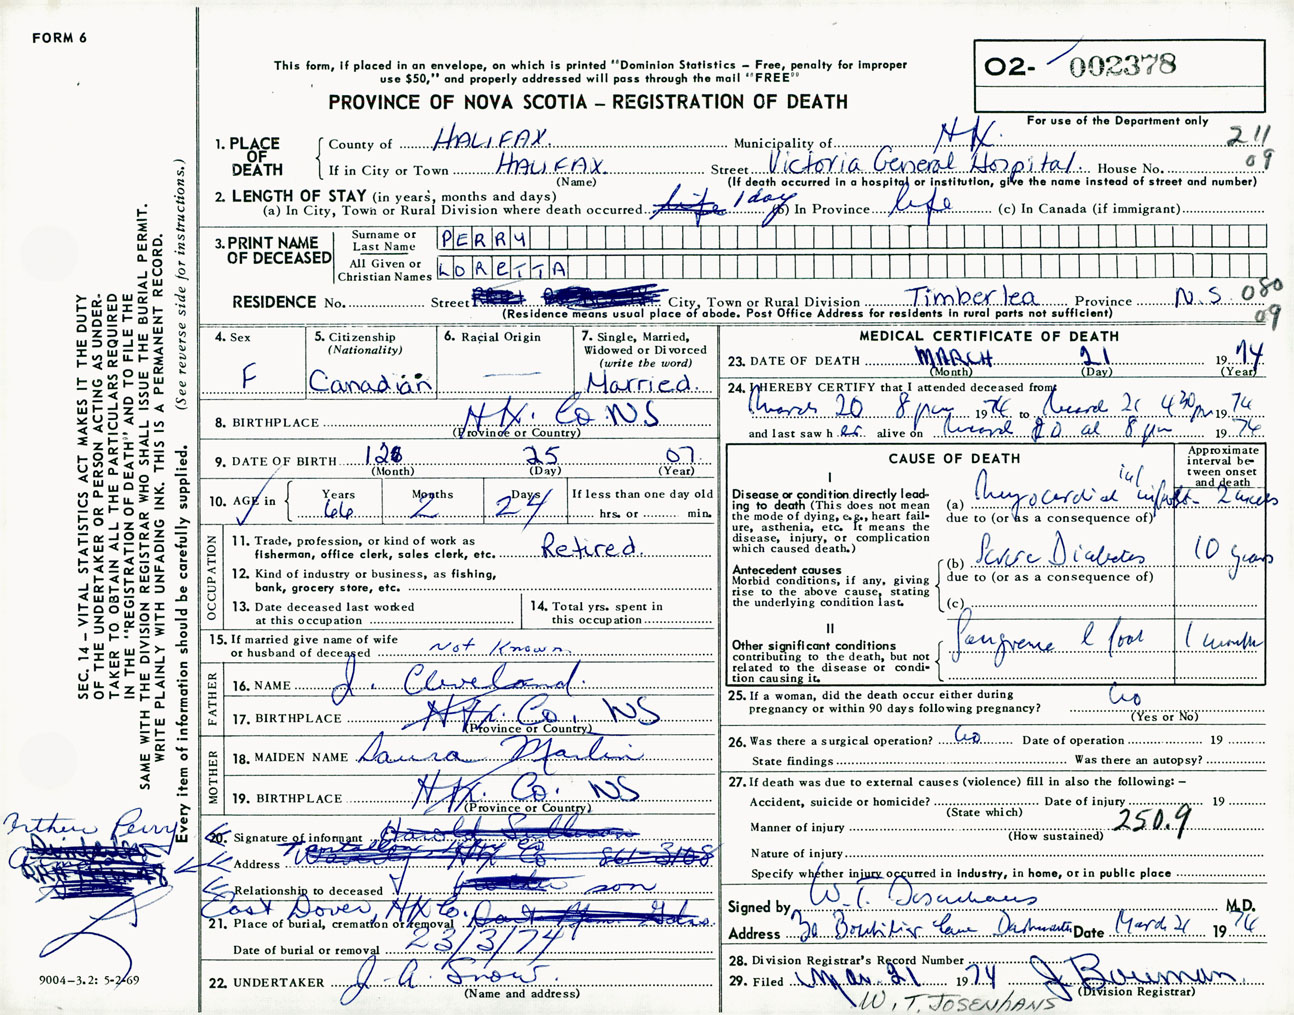 FORM 6
This form, if placed in an envelope, on which is printed "Dominion Statistics – Free, penalty for improper
use $50," and properly addressed will pass through the mail "FREE"
PROVINCE OF NOVA SCOTIA – REGISTRATION OF DEATH
02- 002378
For use of the Department only
1. PLACE OF DEATH
County of HALIFAX. Municipality of HX. 211
If in City or Town HALIFAX. Street Victoria General Hospital. House No. 09
(Name) (If death occurred in a hospital or institution, give the name instead of street and number)
2. LENGTH OF STAY (in years, months and days)
(a) In City, Town or Rural Division where death occurred life 1 day (b) In Province life (c) In Canada (if immigrant)
3. PRINT NAME OF DECEASED
Surname or Last Name PERRY
All Given or Christian Names LORETTA
RESIDENCE No. Street City, Town or Rural Division Timberlea Province N.S. 080
(Residence means usual place of abode. Post Office Address for residents in rural parts not sufficient) 09
4. Sex F
5. Citizenship (Nationality) Canadian
6. Racial Origin —
7. Single, Married, Widowed or Divorced (write the word) Married
8. BIRTHPLACE HX. Co. NS
(Province or Country)
9. DATE OF BIRTH 12 25 07
(Month) (Day) (Year)
10. AGE in Years 66 Months 2 Days 24 If less than one day old
hrs. or min.
OCCUPATION
11. Trade, profession, or kind of work as
fisherman, office clerk, sales clerk, etc. Retired.
12. Kind of industry or business, as fishing,
bank, grocery store, etc.
13. Date deceased last worked
at this occupation
14. Total yrs. spent in
this occupation
15. If married give name of wife
or husband of deceased Not Known
FATHER
16. NAME J. Cleveland.
17. BIRTHPLACE HX. Co. NS
(Province or Country)
MOTHER
18. MAIDEN NAME Laura Marlin
19. BIRTHPLACE HX. Co. NS
(Province or Country)
20. Signature of informant
Address 861-3108
Relationship to deceased son
East Dover, HX Co.
21. Place of burial, cremation or removal
Date of burial or removal 23/3/74
22. UNDERTAKER J. A. Snow.
(Name and address)
MEDICAL CERTIFICATE OF DEATH
23. DATE OF DEATH MARCH 21 1974
(Month) (Day) (Year)
24. I HEREBY CERTIFY that I attended deceased from
March 20 8 pm 1974 to March 21 430 pm 1974
and last saw her alive on March 20 at 8 pm 1974
CAUSE OF DEATH
Approximate interval between onset and death
I
Disease or condition directly leading to death (This does not mean the mode of dying, e.g., heart failure, asthenia, etc. It means the disease, injury, or complication which caused death.)
(a) Myocardial 2 weeks
due to (or as a consequence of)
Antecedent causes
Morbid conditions, if any, giving rise to the above cause, stating the underlying condition last.
(b) Severe Diabetes 10 years
due to (or as a consequence of)
(c)
II
Other significant conditions
contributing to the death, but not related to the disease or condition causing it.
Gangrene L foot 1 month
25. If a woman, did the death occur either during
pregnancy or within 90 days following pregnancy? No
(Yes or No)
26. Was there a surgical operation? No Date of operation 19
State findings Was there an autopsy?
27. If death was due to external causes (violence) fill in also the following: –
Accident, suicide or homicide? Date of injury 19
(State which)
Manner of injury 250.9
(How sustained)
Nature of injury
Specify whether injury occurred in industry, in home, or in public place
Signed by W. T. Josenhans M.D.
Address 30 Boutilier Lane Dartmouth Date March 21 1974
28. Division Registrar's Record Number
29. Filed Mar. 21 1974 J. Bowman
(Division Registrar)
W. T. JOSENHANS
SEC. 14 – VITAL STATISTICS ACT MAKES IT THE DUTY
OF THE UNDERTAKER OR PERSON ACTING AS UNDER-
TAKER TO OBTAIN ALL THE PARTICULARS REQUIRED
IN THE "REGISTRATION OF DEATH" AND TO FILE THE
SAME WITH THE DIVISION REGISTRAR WHO SHALL ISSUE THE BURIAL PERMIT.
WRITE PLAINLY WITH UNFADING INK. THIS IS A PERMANENT RECORD.
Every item of information should be carefully supplied. (See reverse side for instructions.)
Perry
9004–3.2: 5-2-69